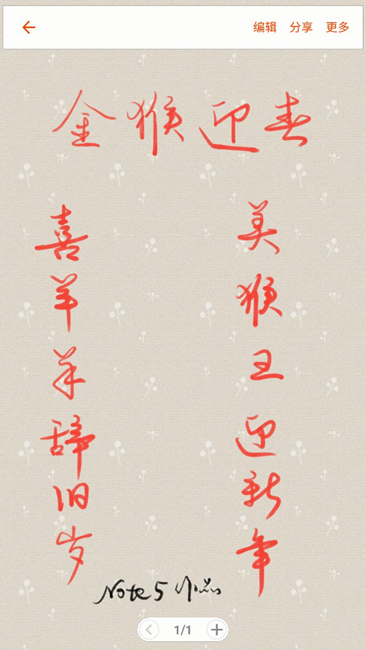 编辑 分享 更多
金猴迎春
美猴王迎新年
喜羊羊辞旧岁
Note 5 作品
1/1